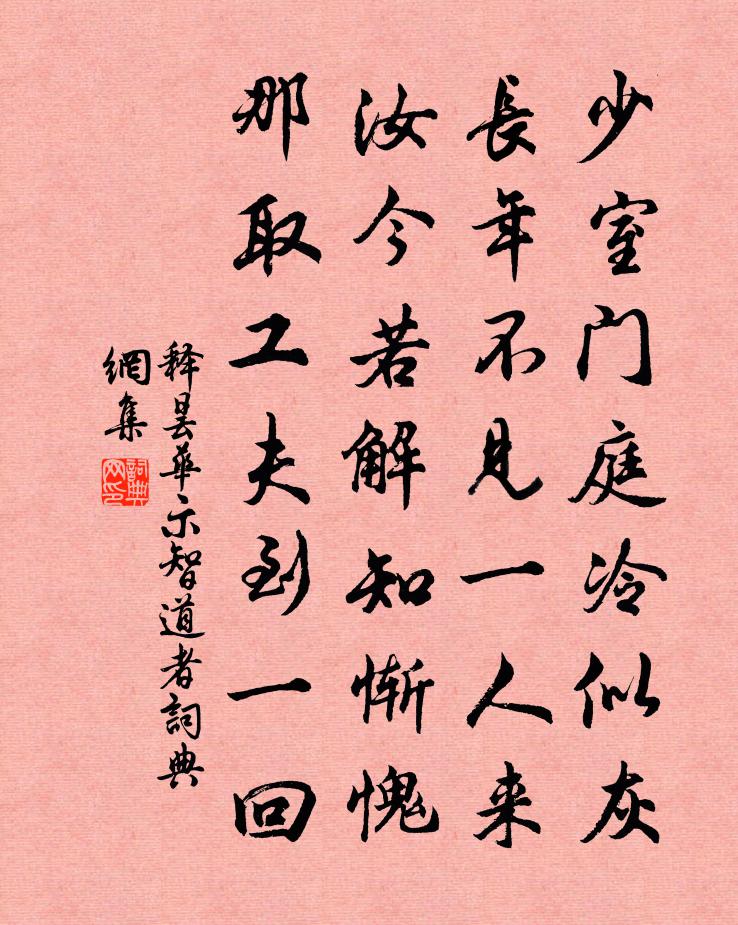 少室門庭冷似灰
長年不見一人来
汝今若解知慚愧
那取工夫到一回
释曇華示智道者詞典
網集
詞典網印